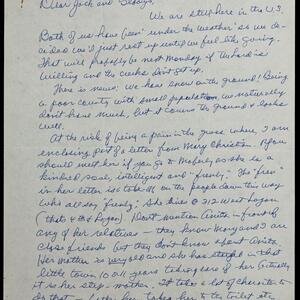 Dear Jack and
We are still here in the U.S.
Both of us have been 'under the weather' so we de-
cided we'll just rest up until we feel like going.
That will probably be next Monday if the Lord is
willing and the creeks don't get up.
There is news: We have snow on the ground! Being
a poor county with small population, we naturally
don't have much, but it covers the ground & looks
well.
At the risk of being a pain in the grass, I am
enclosing part of a letter from Mary Christian. Before
should meet her if you go to as she is a
kindred soul, intelligent and "freaky". The
in her letter is to take off on the people down this way
who all say "freaky". She lives @ 312 West Logan
(that is W. Logan) Don't mention Anita in front of
any of her relatives - they know Mary and I are
close friends but they don't know about Anita.
Her mother is very old and she has stayed in that
little town 10 all years taking care of her. Actually
it is her step-mother. It takes a lot of character to
do that - takes her to the toilet etc